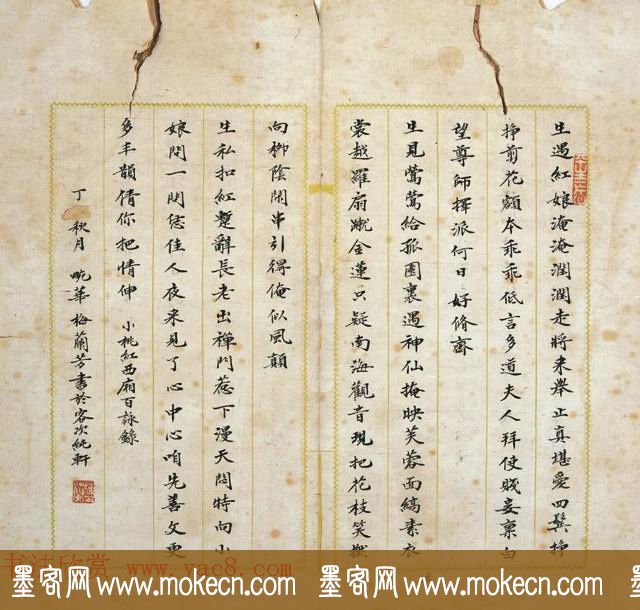 生遇紅娘淹淹潤潤走將来舉止真堪愛四鬓挣
挣剪花額本乖乖低言多道夫人拜使賤妾稟白
望尊師揮派何日好脩齋
生見鶯鶯給孤園裏遇神仙掩映芙蓉面縞素衣
裳越羅扇蹴金蓮只疑南海觀音現把花枝笑撚
向柳陰閒串引得俺似風顛
生私扣紅蹔辭長老出禪門惹下漫天悶特向小
娘問一問恁佳人夜来見了心中心咱先善文更
多丰韻倩你把情伸 小桃紅西廂百詠錄
丁 秋月 畹華梅蘭芳書於客次純軒
书法欣赏 www.yac8.com
墨客网 www.mokecn.com 墨客网 www.mokecn.com